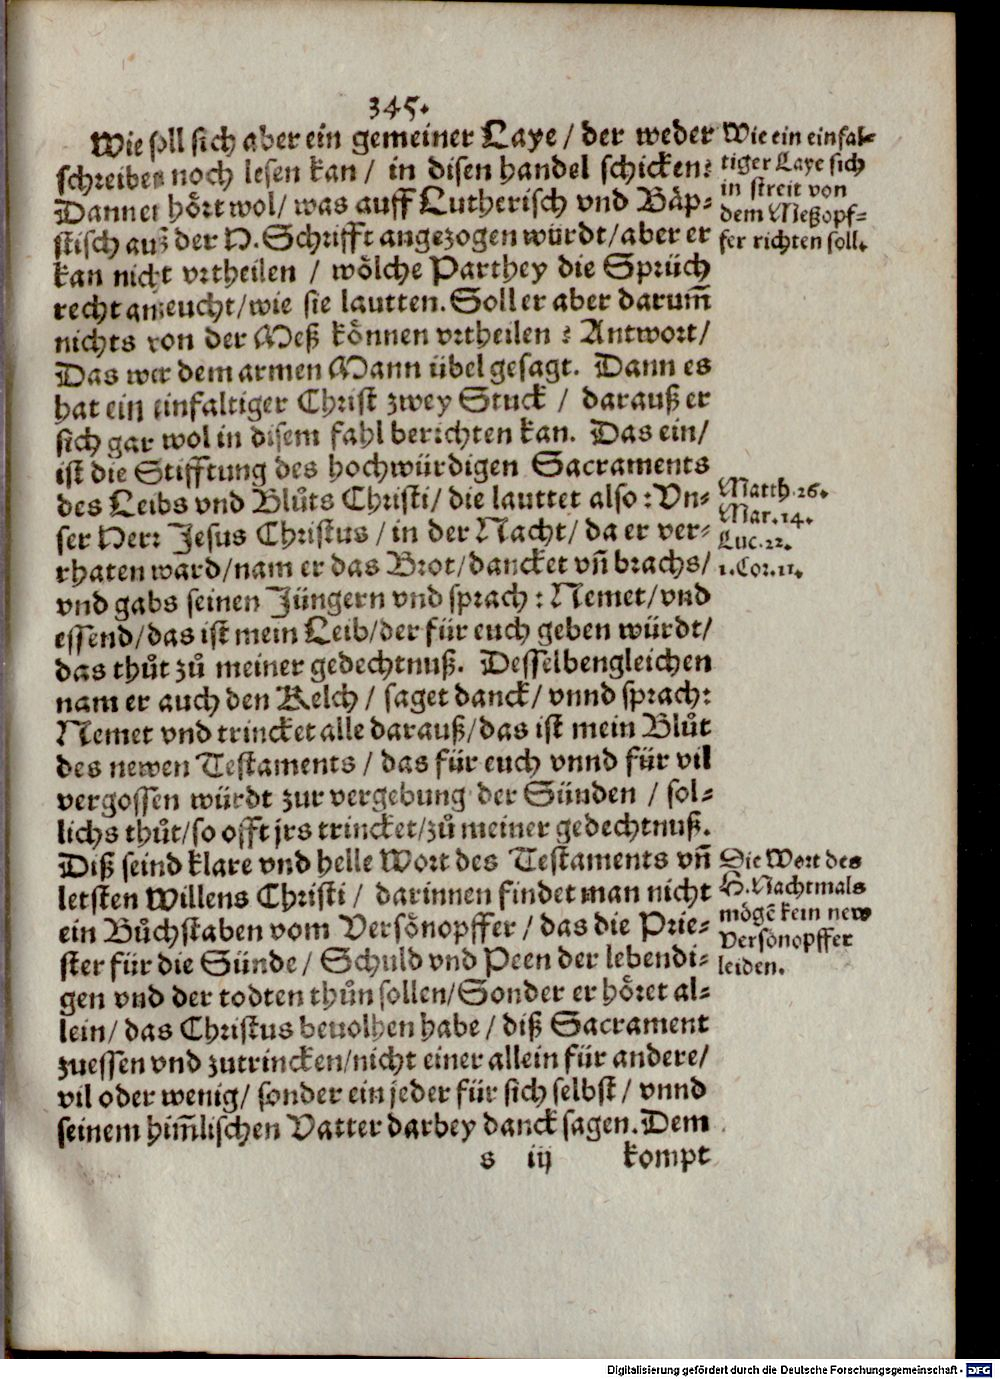 345.
Wie soll sich aber ein gemeiner Laye / der weder
schreiben noch lesen kan / in disen handel schicken?
Dann er hört wol / was auff Lutherisch vnd Bäp⸗
stisch auß der H. Schrifft angezogen würdt / aber er
kan nicht vrtheilen / wölche Parthey die Sprüch
recht anzeucht / wie sie lautten. Soll er aber darum̃
nichts von der Meß können vrtheilen? Antwort /
Das wer dem armen Mann übel gesagt. Dann es
hat ein einfaltiger Christ zwey Stuck / darauß er
sich gar wol in disem fahl berichten kan. Das ein /
ist die Stifftung des hochwürdigen Sacraments
des Leibs vnd Blůts Christi / die lauttet also: Vn⸗
ser Herr Jesus Christus / in der Nacht / da er ver⸗
rhaten ward / nam er das Brot / dancket vñ brachs /
vnd gabs seinen Jüngern vnd sprach: Nemet / vnd
essend / das ist mein Leib / der für euch geben würdt /
das thůt zů meiner gedechtnuß. Desselbengleichen
nam er auch den Kelch / saget danck / vnnd sprach:
Nemet vnd trincket alle darauß / das ist mein Blůt
des newen Testaments / das für euch vnnd für vil
vergossen würdt zur vergebung der Sünden / sol⸗
lichs thůt / so offt jrs trincket / zů meiner gedechtnuß.
Diß seind klare vnd helle Wort des Testaments vñ
letsten Willens Christi / darinnen findet man nicht
ein Bůchstaben vom Versönopffer / das die Prie⸗
ster für die Sünde / Schuld vnd Peen der lebendi⸗
gen vnd der todten thůn sollen / Sonder er höret al⸗
lein / das Christus beuolhen habe / diß Sacrament
zuessen vnd zutrincken / nicht einer allein für andere /
vil oder wenig / sonder ein jeder für sich selbst / vnnd
seinem him̃lischen Vatter darbey danck sagen. Dem
s iij kompt
Wie ein einfal⸗
tiger Laye sich
in streit von
dem Meßopf⸗
fer richten soll.
Matth. 26.
Mar. 14.
Luc. 22.
1. Cor. 11.
Die Wort des
H. Nachtmals
mögẽ kein new
Versönopffer
leiden.
Digitalisierung gefördert durch die Deutsche Forschungsgemeinschaft - DFG